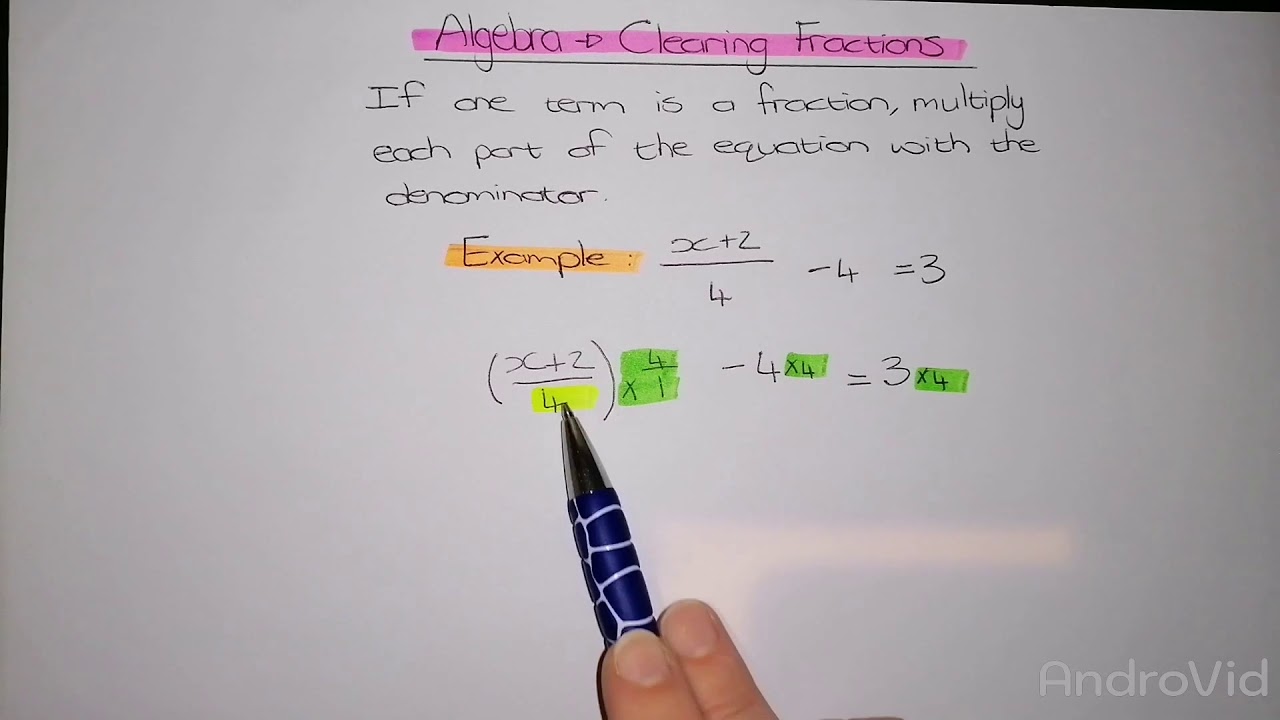 Algebra → Clearing Fractions
If one term is a fraction, multiply
each part of the equation with the
denominator.
Example: x+2/4 -4 =3
(x+2/4) × 4/1 -4 ×4 = 3 ×4
AndroVid